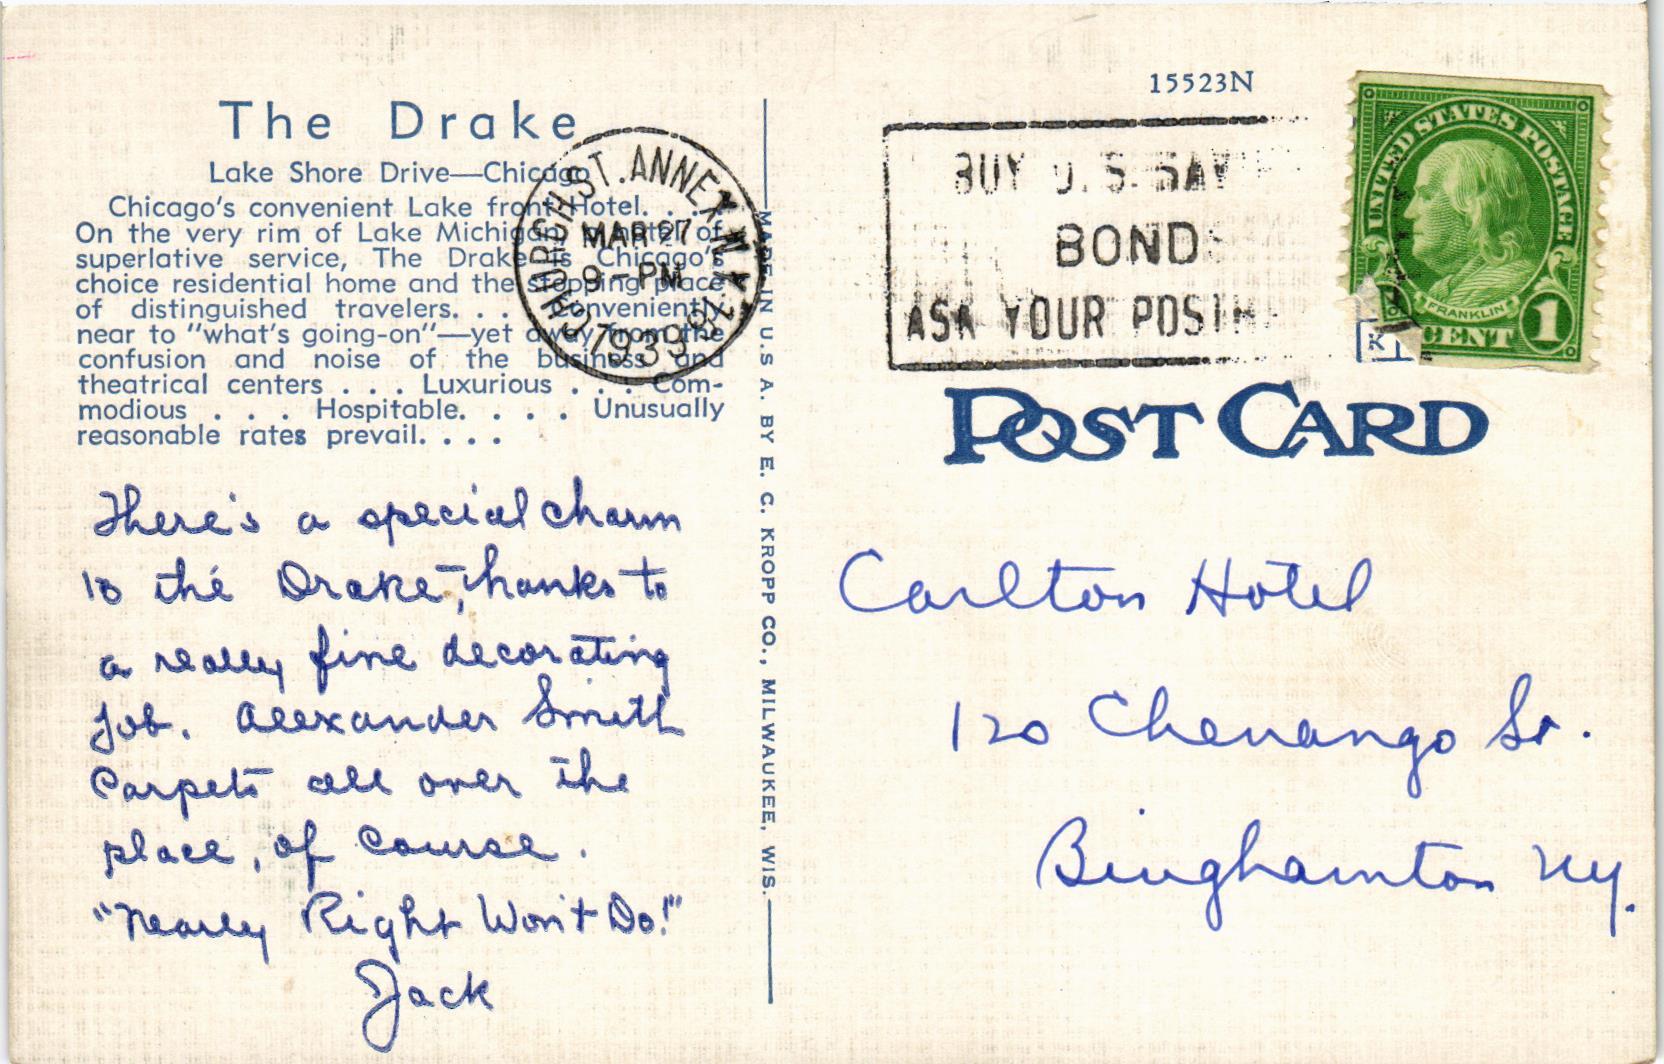 The Drake
Lake Shore Drive—Chicago
Chicago's convenient Lake front Hotel. . . .
On the very rim of Lake Michigan, a hotel of
superlative service, The Drake is Chicago's
choice residential home and the stopping place
of distinguished travelers. . . Conveniently
near to "what's going-on"—yet away from the
confusion and noise of the business and
theatrical centers . . . Luxurious . . . Com-
modious . . . Hospitable. . . . Unusually
reasonable rates prevail. . . .
There's a special charm
to the Drake, thanks to
a really fine decorating
job. Alexander Smith
Carpets all over the
place, of course.
"Nearly Right Won't Do!"
Jack
MADE IN U.S A. BY E. C. KROPP CO., MILWAUKEE, WIS.
CHURCH ST. ANNEX N.Y.
MAR 27
9-PM
1939
15523N
BUY U.S. SAV
BOND
ASK YOUR POSTM
UNITED STATES POSTAGE
FRANKLIN
1 CENT 1
POST CARD
Carlton Hotel
120 Chenango St.
Binghamton Ny.